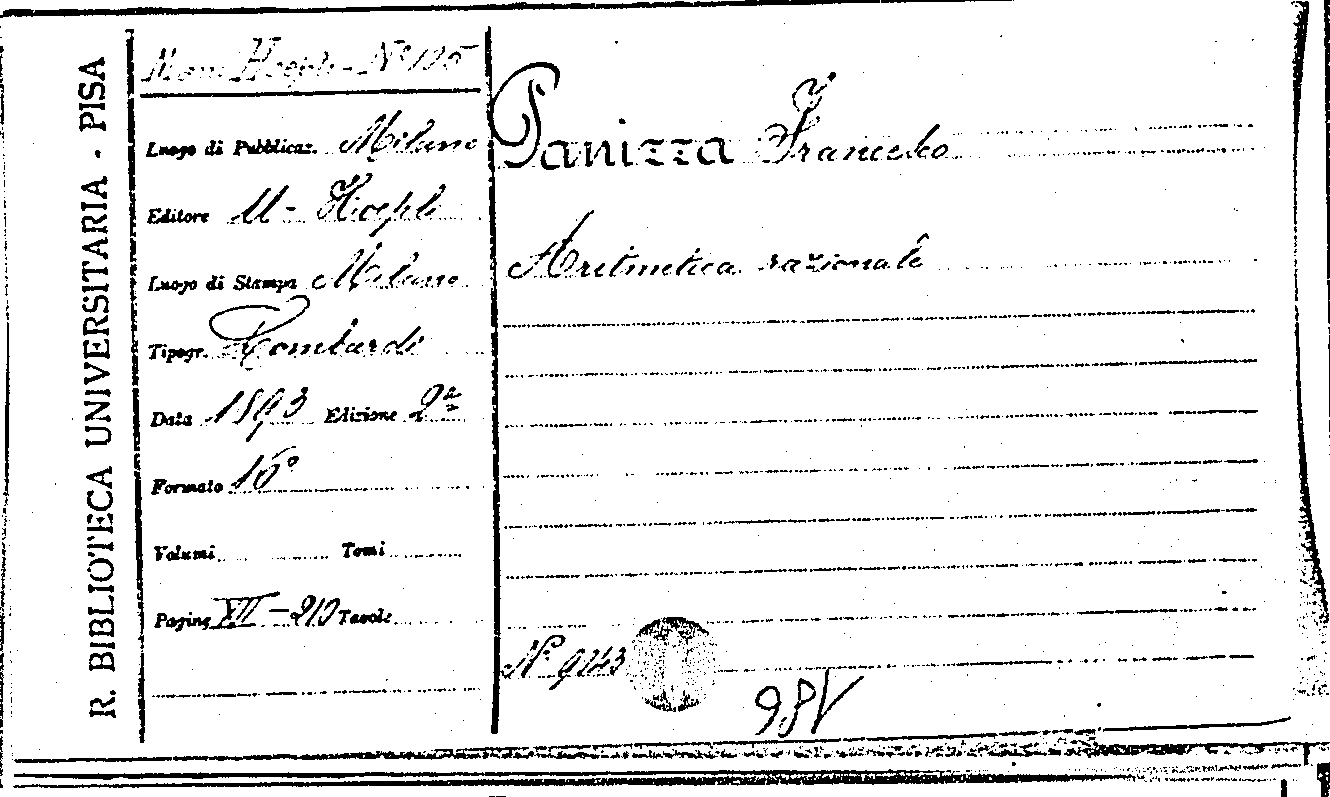 R. BIBLIOTECA UNIVERSITARIA - PISA
Man. Hoepli - Nº 125
Luogo di Pubblicaz. Milano
Editore U. Hoepli
Luogo di Stampa Milano
Tipogr. Lombardi
Data 1893 Edizione 2ª
Formato 16º
Volumi Tomi
Pagine XII - 210 Tavole
Panizza Francesco
Aritmetica razionale
Nº 9243